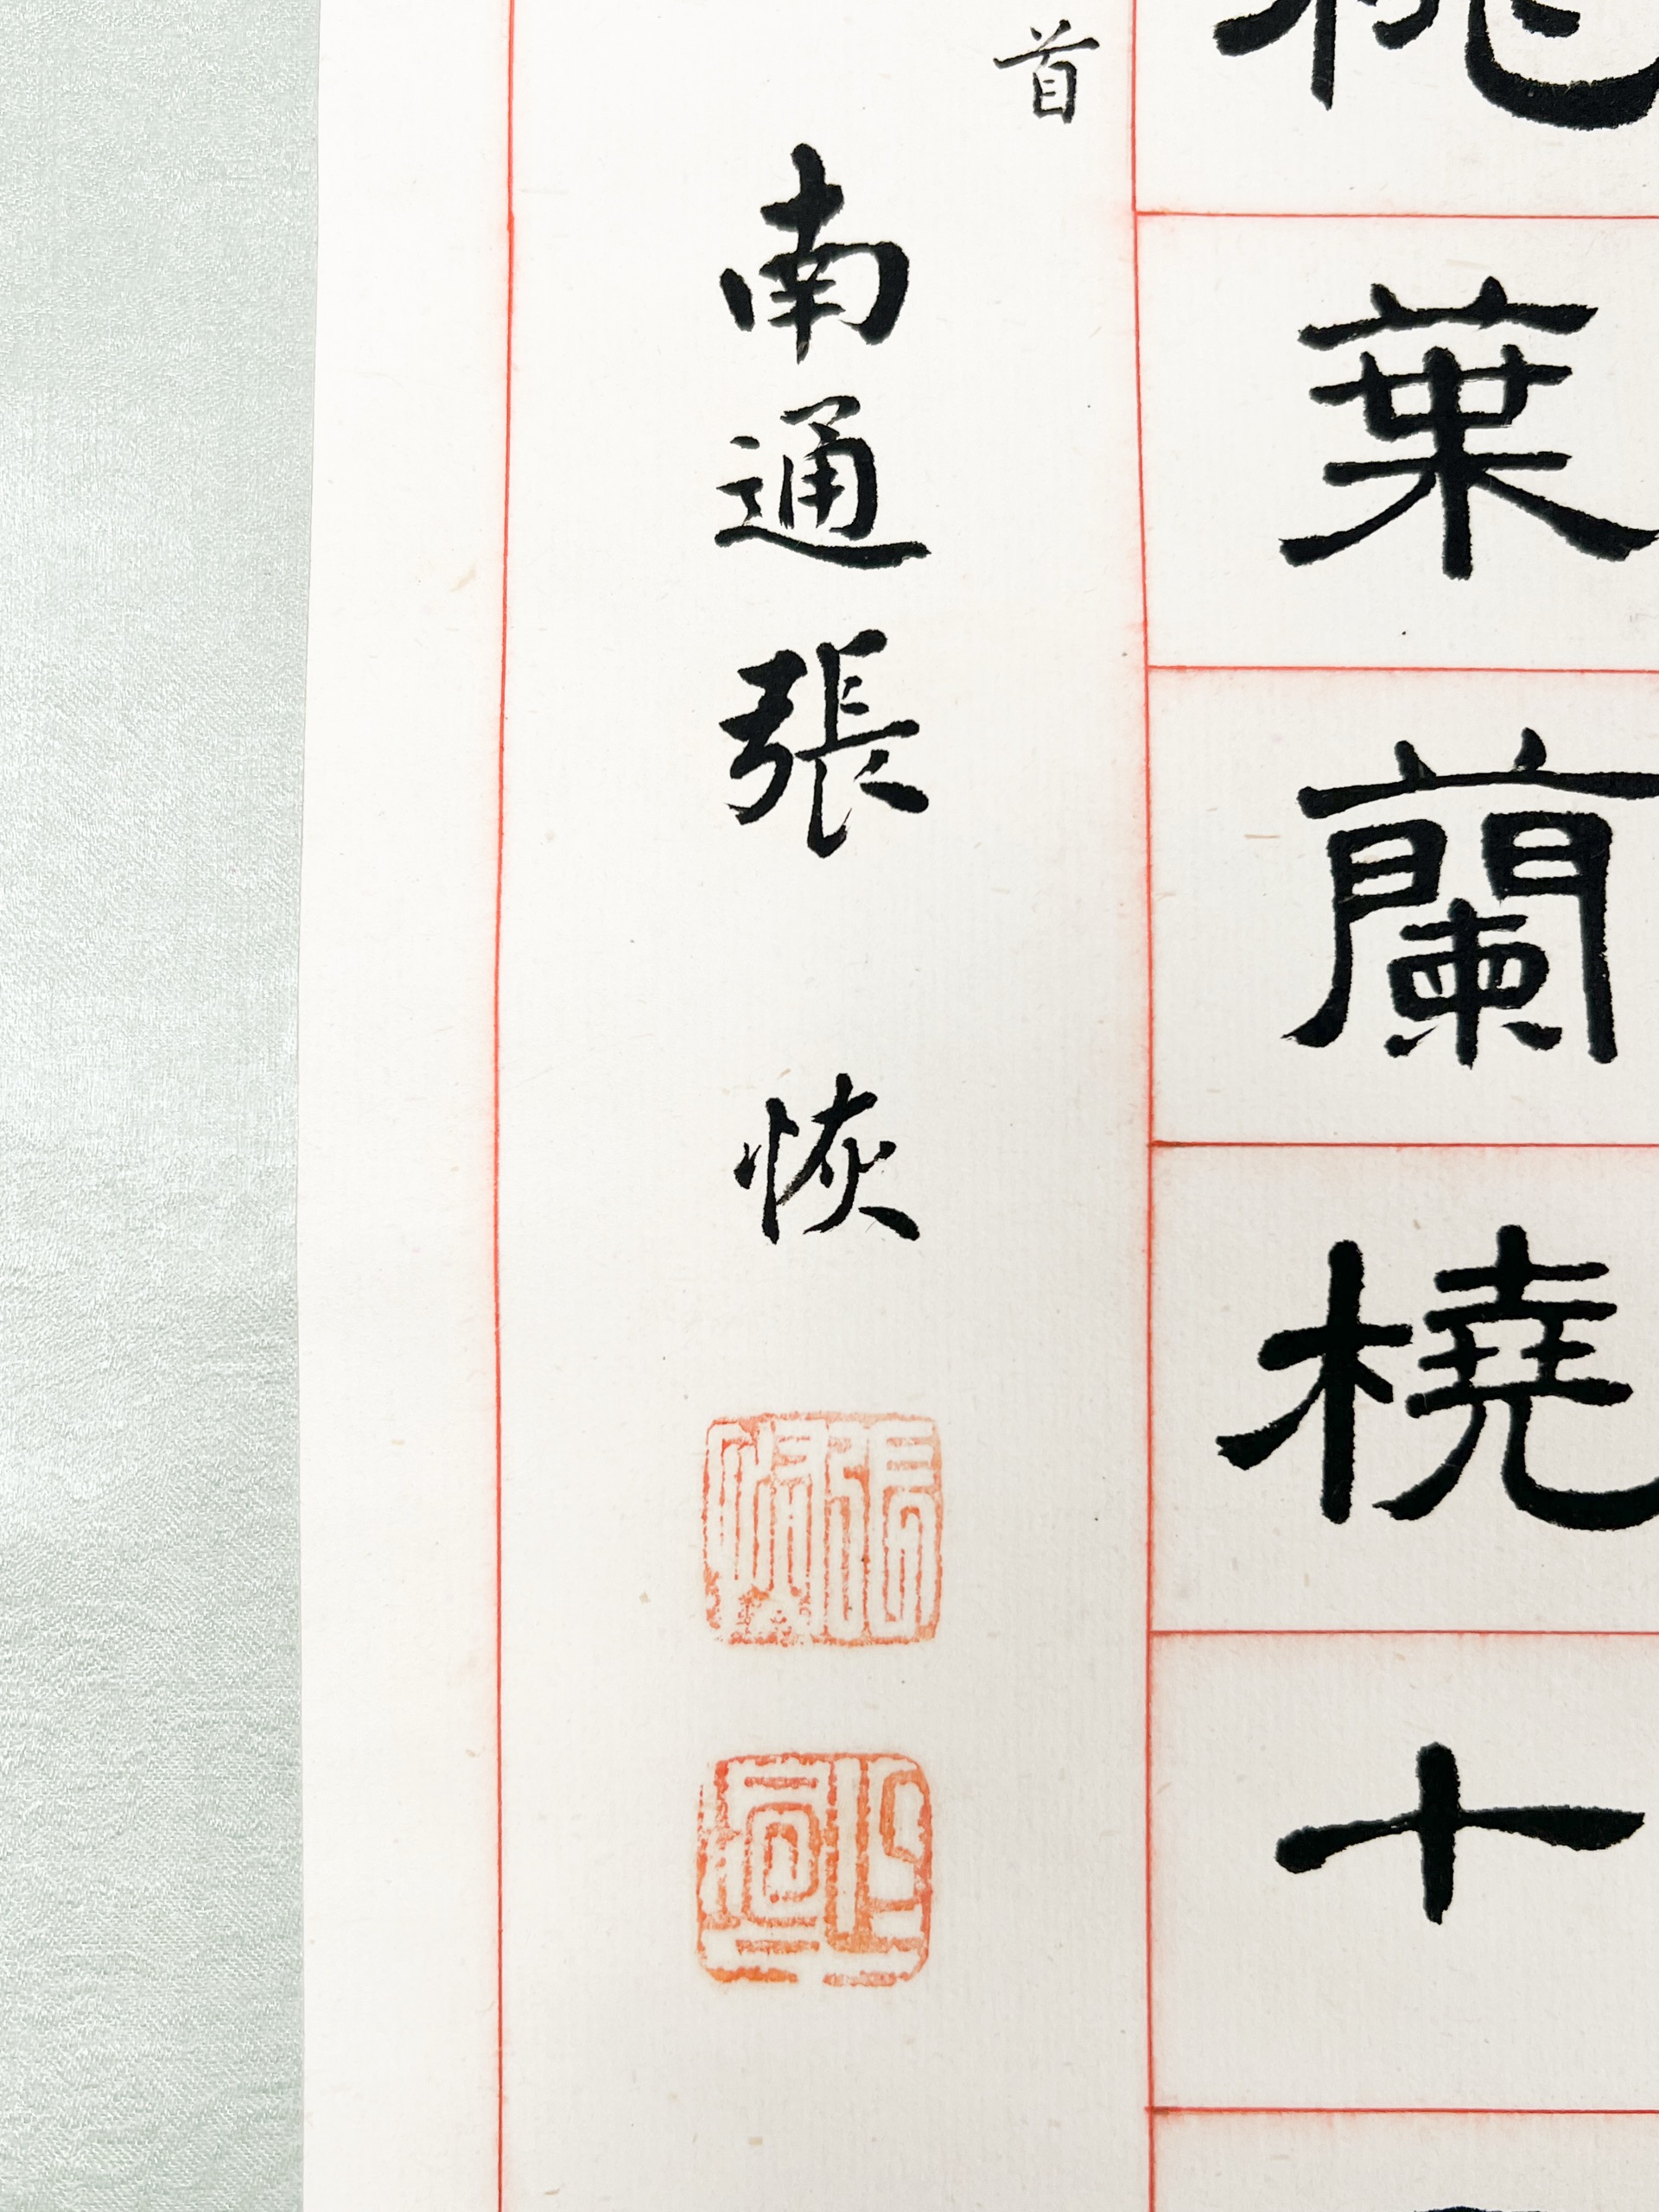 桃葉蘭橈十
首
南通張 恢
張恢